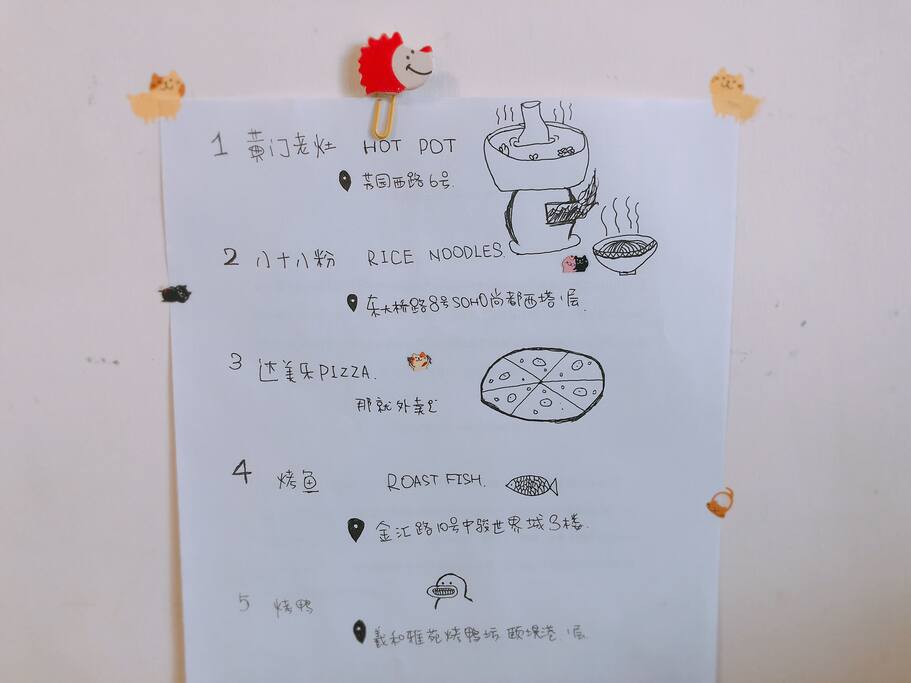 1 黄门老灶 HOT POT
芳园西路6号.
2 八十八粉 RICE NOODLES.
东大桥路8号SOHO尚都西塔1层.
3 达美乐PIZZA.
那就外卖吧
4 烤鱼 ROAST FISH.
金汇路10号中骏世界城3楼.
5 烤鸭
羲和雅苑烤鸭坊 颐堤港1层